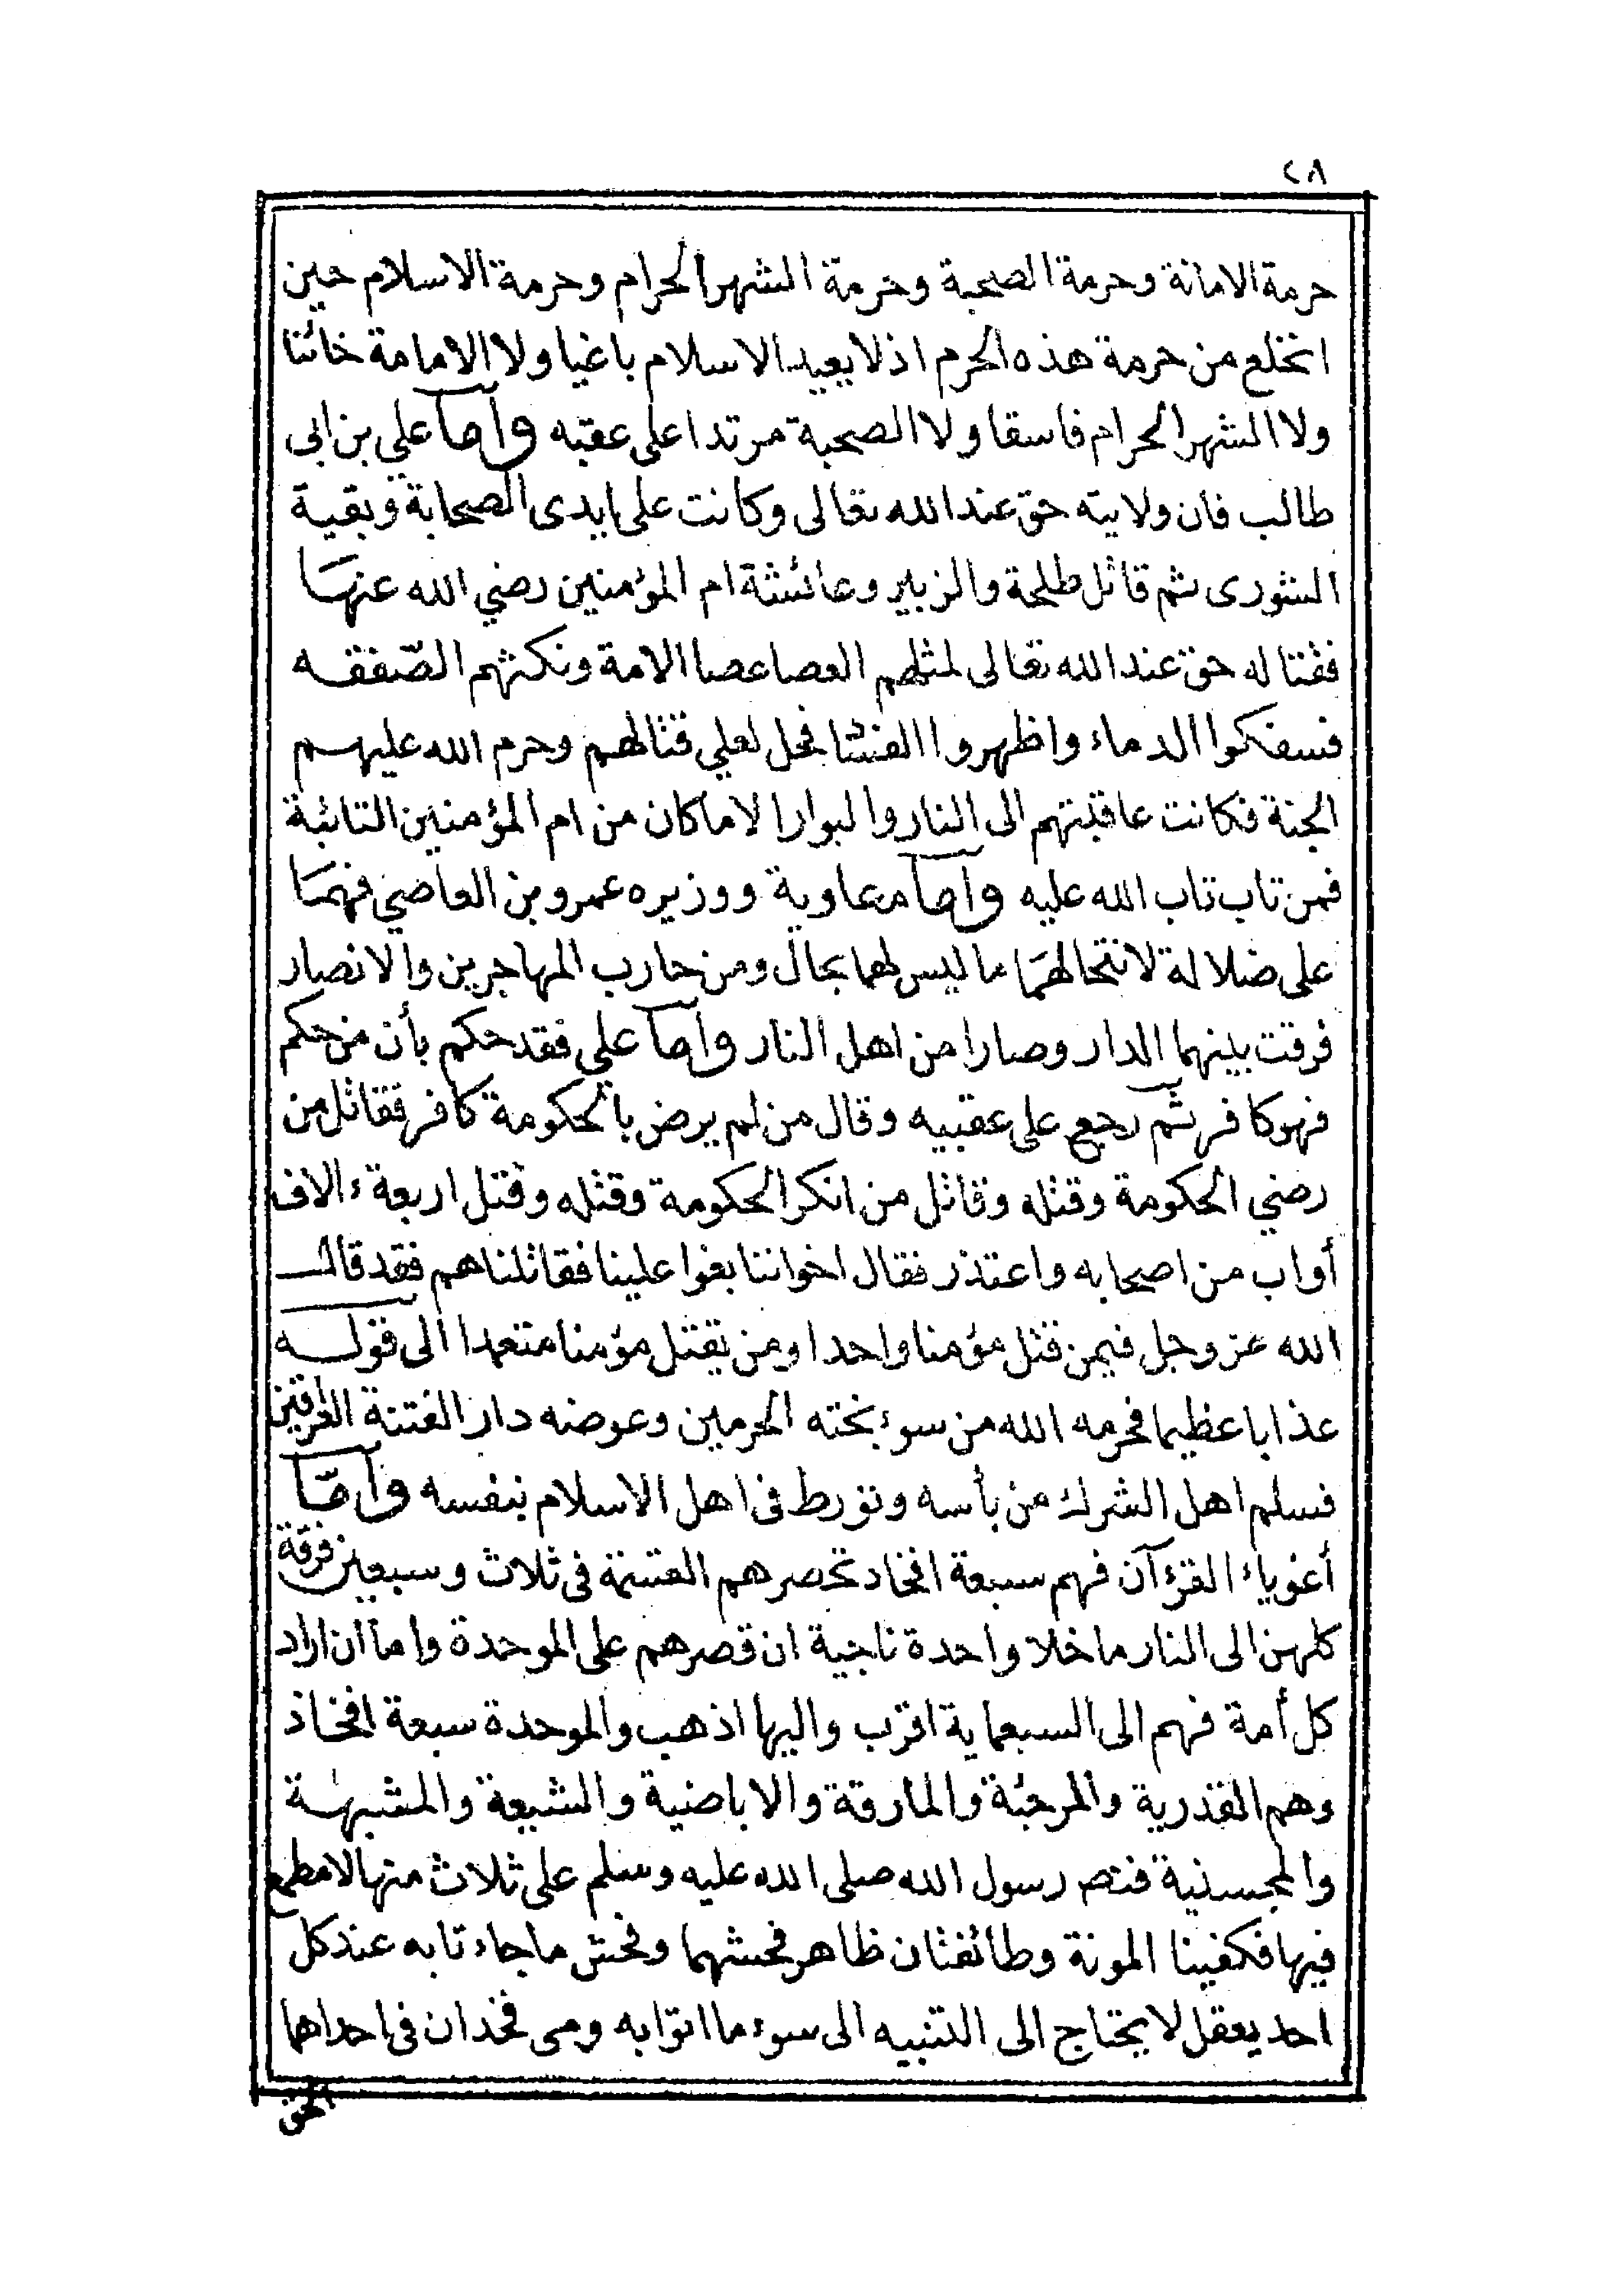 ٢٨
حرمة الامانة وحرمة الصحبة وحرمة الشهر الحرام وحرمة الاسلام حين
انخلع من حرمة هذه الحرم اذ لا يعيد الاسلام باغيا ولا الامامة خائنا
ولا الشهر الحرام فاسقا ولا الصحبة مرتدا على عقبه وأما علي بن ابى
طالب فان ولايته حق عند الله تعالى وكانت على ايدى الصحابة وبقية
الشورى ثم قاتل طلحة والزبير وعائشة ام المؤمنين رضي الله عنها
فقتاله حق عند الله تعالى لمثلهم العصا عصا الامة ونكثهم الصّفقه
فسفكوا الدماء واظهروا الفتنا فحل لعلي قتالهم وحرم الله عليهم
الجنة فكانت عاقبتهم الى النار والبوار الا ما كان من ام المؤمنين التائبة
فمن تاب تاب الله عليه وأما معاوية ووزيره عمرو بن العاصي فهما
على ضلالة لانتحالهما ما ليس لهما بحال ومن حارب المهاجرين والانصار
فرقت بينهما الدار وصارا من اهل النار وأما علي فقد حكم بأن من حكم
فهو كافر ثم رجع على عقبيه وقال من لم يرض بالحكومة كافر فقاتل من
رضي الحكومة وقتله وقاتل من انكر الحكومة وقتله وقتل اربعة ءالاف
أواب من اصحابه واعتذر فقال اخواننا بغوا علينا فقاتلناهم فقد قال
الله عز وجل فيمن قتل مؤمنا واحدا ومن يقتل مؤمنا متعمدا الى قوله
عذابا عظيما فحرمه الله من سوء بخته الحرمين وعوضه دار الفتنة العراقين
فسلم اهل الشرك من بأسه وتورط فى اهل الاسلام بنفسه وأمّا
أغوياء القرءآن فهم سبعة افخاذ تحصرهم القسمة فى ثلاث وسبعين فرقة
كلهن الى النار ما خلا واحدة ناجية ان قصرهم على الموحدة واما ان اراد
كل أمة فهم الى السبعماية اقرب واليها اذهب والموحدة سبعة افخاذ
وهم القدرية والمرجئة والمارقة والاباضية والشيعة والمشبهة
والمحسنية فنص رسول الله صلى الله عليه وسلم على ثلاث منها لا مطمع
فيها فكفينا المونة وطائفتان ظاهر فحشهما وفحش ما جاءتا به عند كل
احد يعقل لا يحتاج الى التنبيه الى سوء ما اتوا به ومى فخدان فى احداهما
الحق